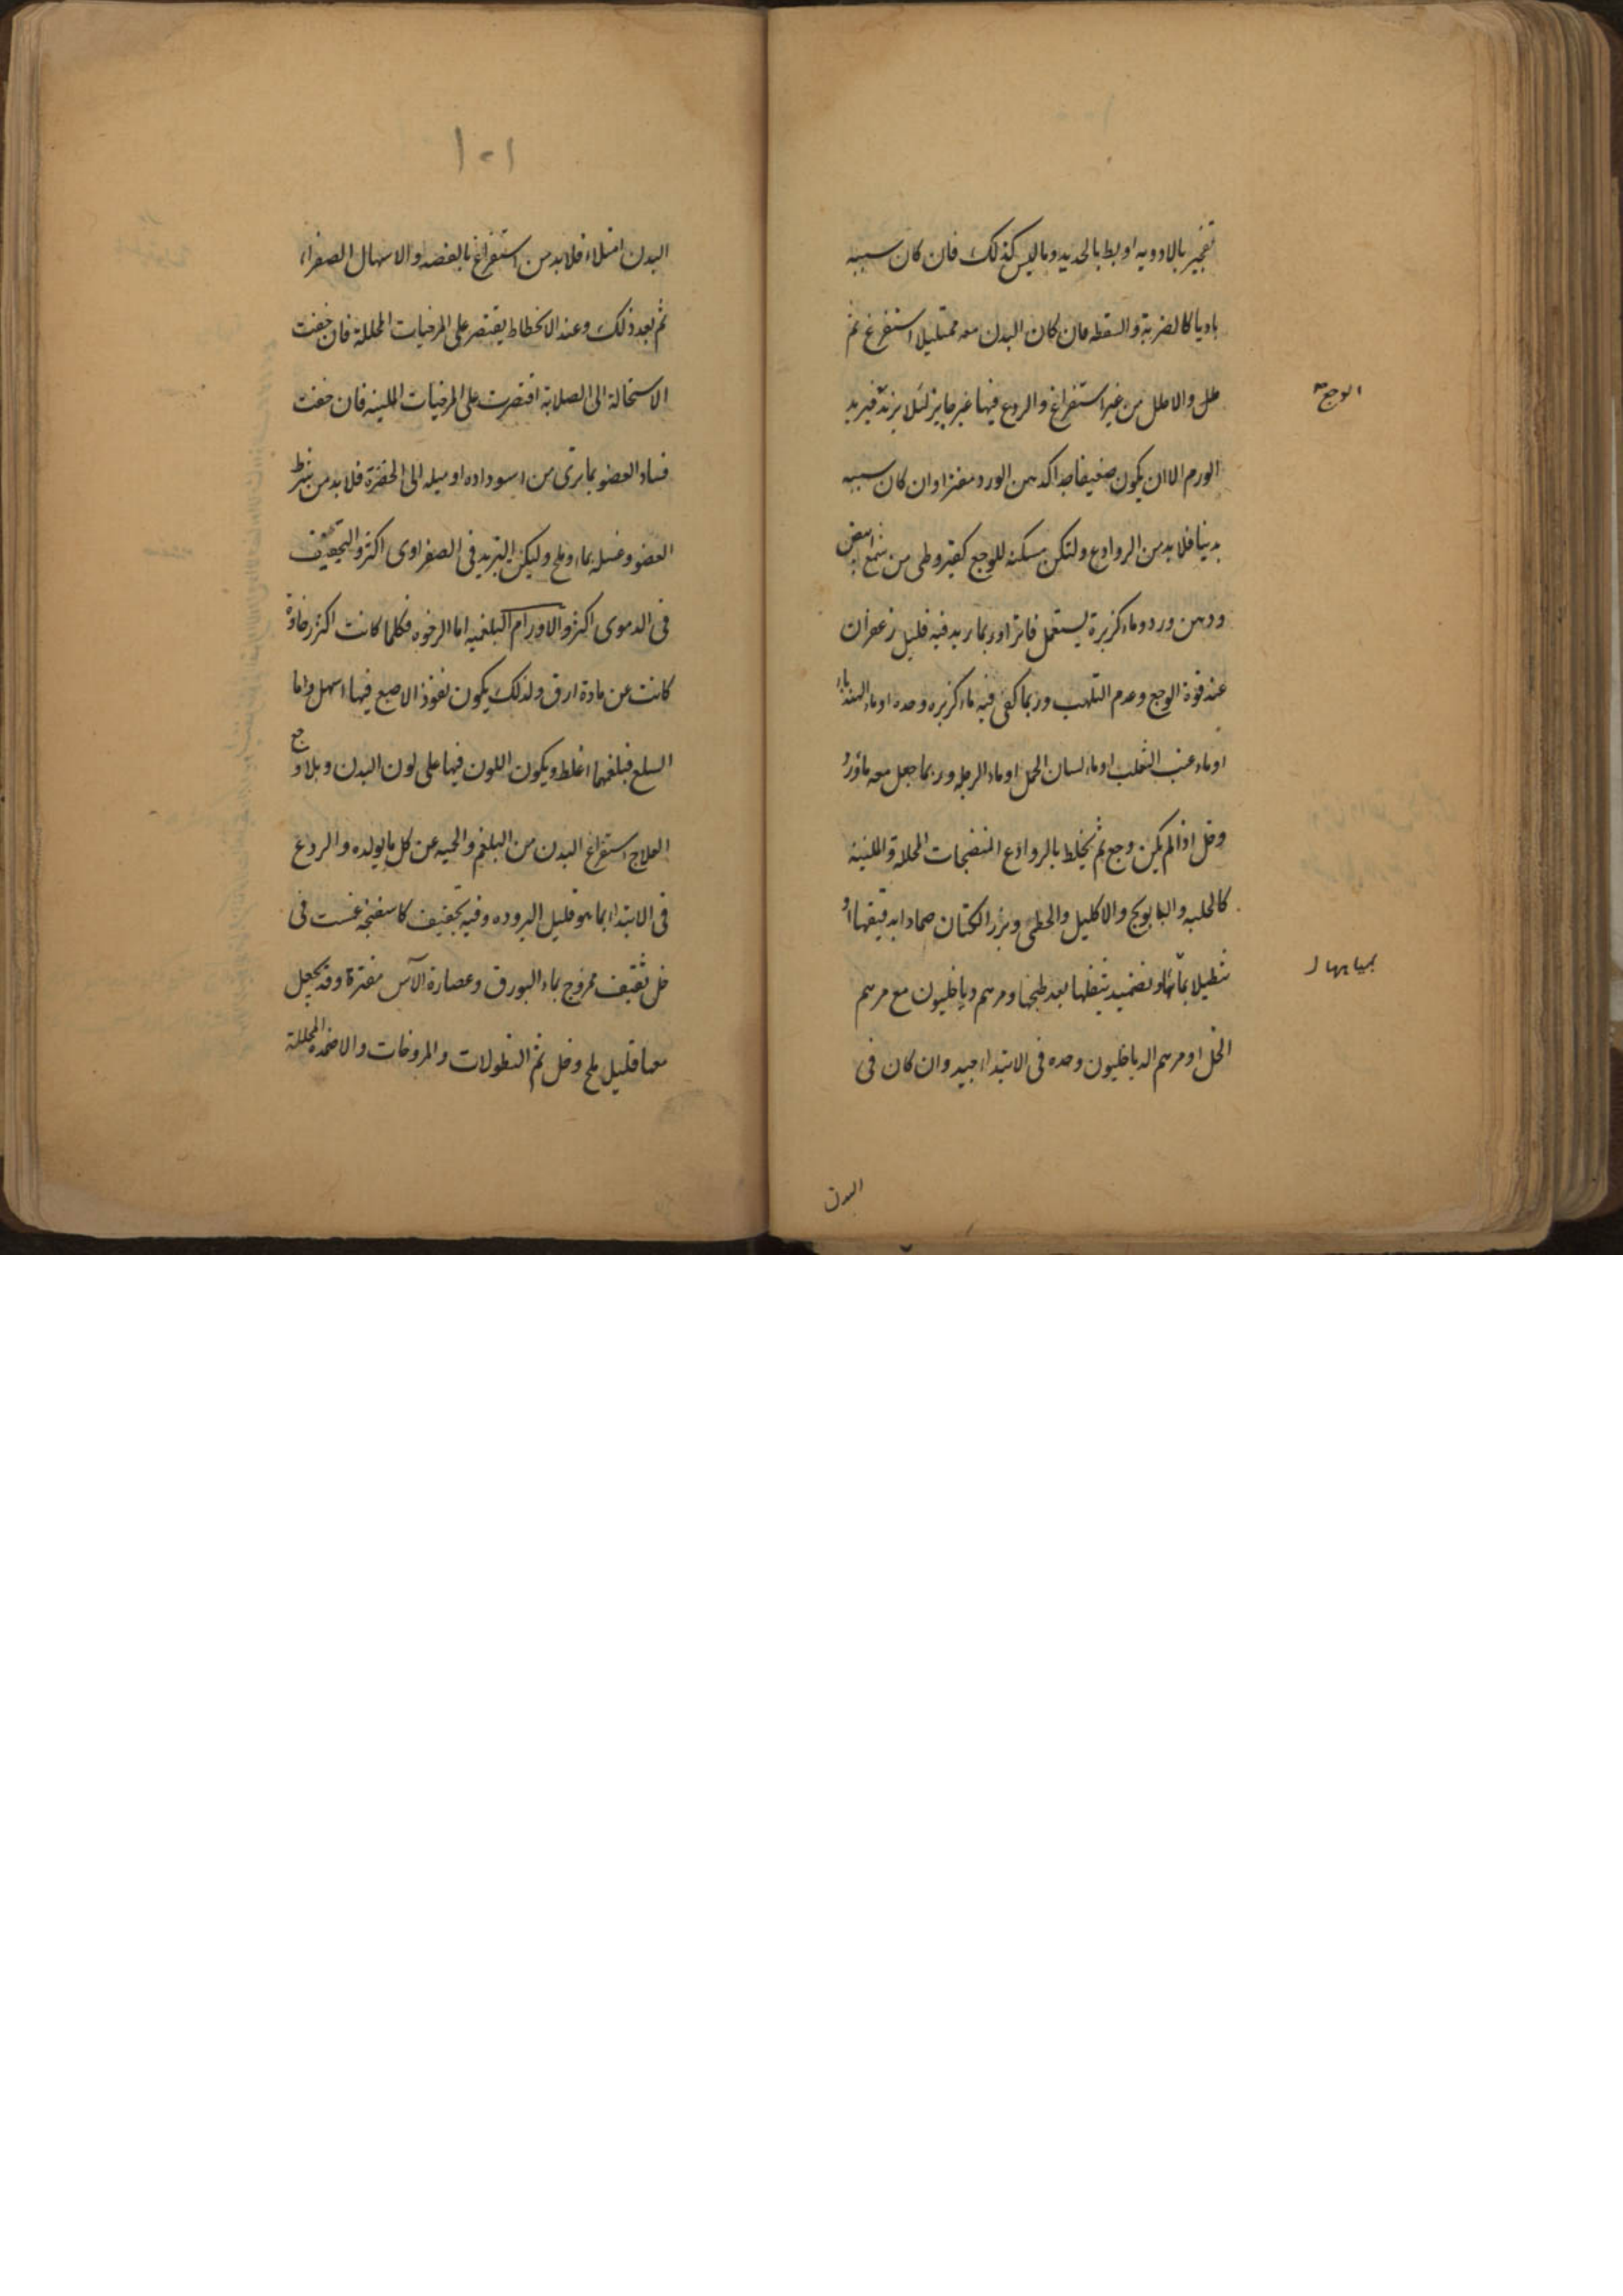 تفجير بالادويه او بط بالحديد وما ليس كذلك فان كان سببه
باديا كالضربة والسقطه فان كان البدن معه ممتليلا استفرغ ثم
حلل والا حلل من غير استفراغ والردع فيها غير جايز لئلا يزيد فيزيد
الوجع
الورم الا ان يكون ضعيفا جدا كدهن الورد مفترا وان كان سببه
بدنيا فلا بد من الروادع ولتكن مسكنه للوجع كقيروطى من شمع ابيض
ودهن ورد وماء كزبرة يستعمل فاترا وربما زيد فيه قليل زعفران
عند قوة الوجع وعدم التلهب وربما كفى فيه ماء كزبره وحده او ماء الهندباء
او ماء عنب الثعلب او ماء لسان الحمل او ماء الرجله وربما جعل معه ماورد
وخل اذا لم يكن وجع ثم يخلط بالروادع المنضجات المحللة والملينة
كالحلبه والبابونج والاكليل والخطمى وبزر الكتان ضمادا بدقيقها او
تنطيلا بمائها وتضميد بثفلها بعد طبخها ومرهم دياخليون مع مرهم
بمياهها
الخل او مرهم الدياخليون وحده فى الابتداء جيد وان كان فى
البدن
١٠١
البدن امتلاء فلابد من استفراغ بالفصد والاسهال الصفراء
ثم بعد ذلك وعند الانحطاط يقتصر على المرخيات المحللة فان خفت
الاستحالة الى الصلابة اقتصرت على المرخيات الملينه فان خفت
فساد العضو بما ترى من اسوداده او ميله الى الخضرة فلابد من شرط
العضو وغسله بماء وملح وليكن التبريد فى الصفراوى اكثر والتجفيف
فى الدموى اكثر والاورام البلغميه اما الرخوه فكلما كانت اكثر رخاوة
كانت عن مادة ارق ولذلك يكون نفوذ الاصبع فيها اسهل واما
السلع فبلغمها اغلظ ويكون اللون فيها على لون البدن وبلا وجع
العلاج استفراغ البدن من البلغم والحميه عن كل ما يولده والردع
فى الابتداء بما هو قليل البروده وفيه تجفيف كاسفنجه غمست فى
خل ثقيف ممزوج بماء البورق وعصارة الآس مفترة وقد يجعل
معها قليل ملح وخل ثم النطولات والمروخات والاضمده المحللة